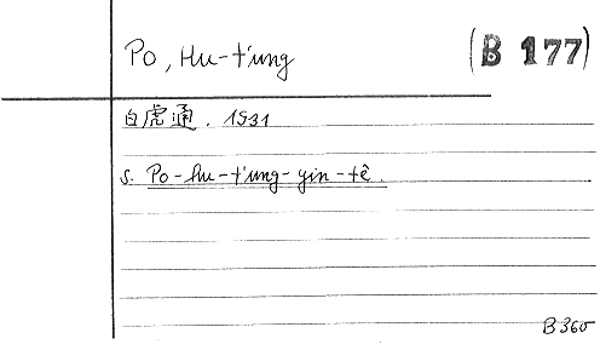 Po, Hu-t'ung
(B 177)
白虎通. 1931
s. Po-hu-t'ung-yin-tê.
B 360